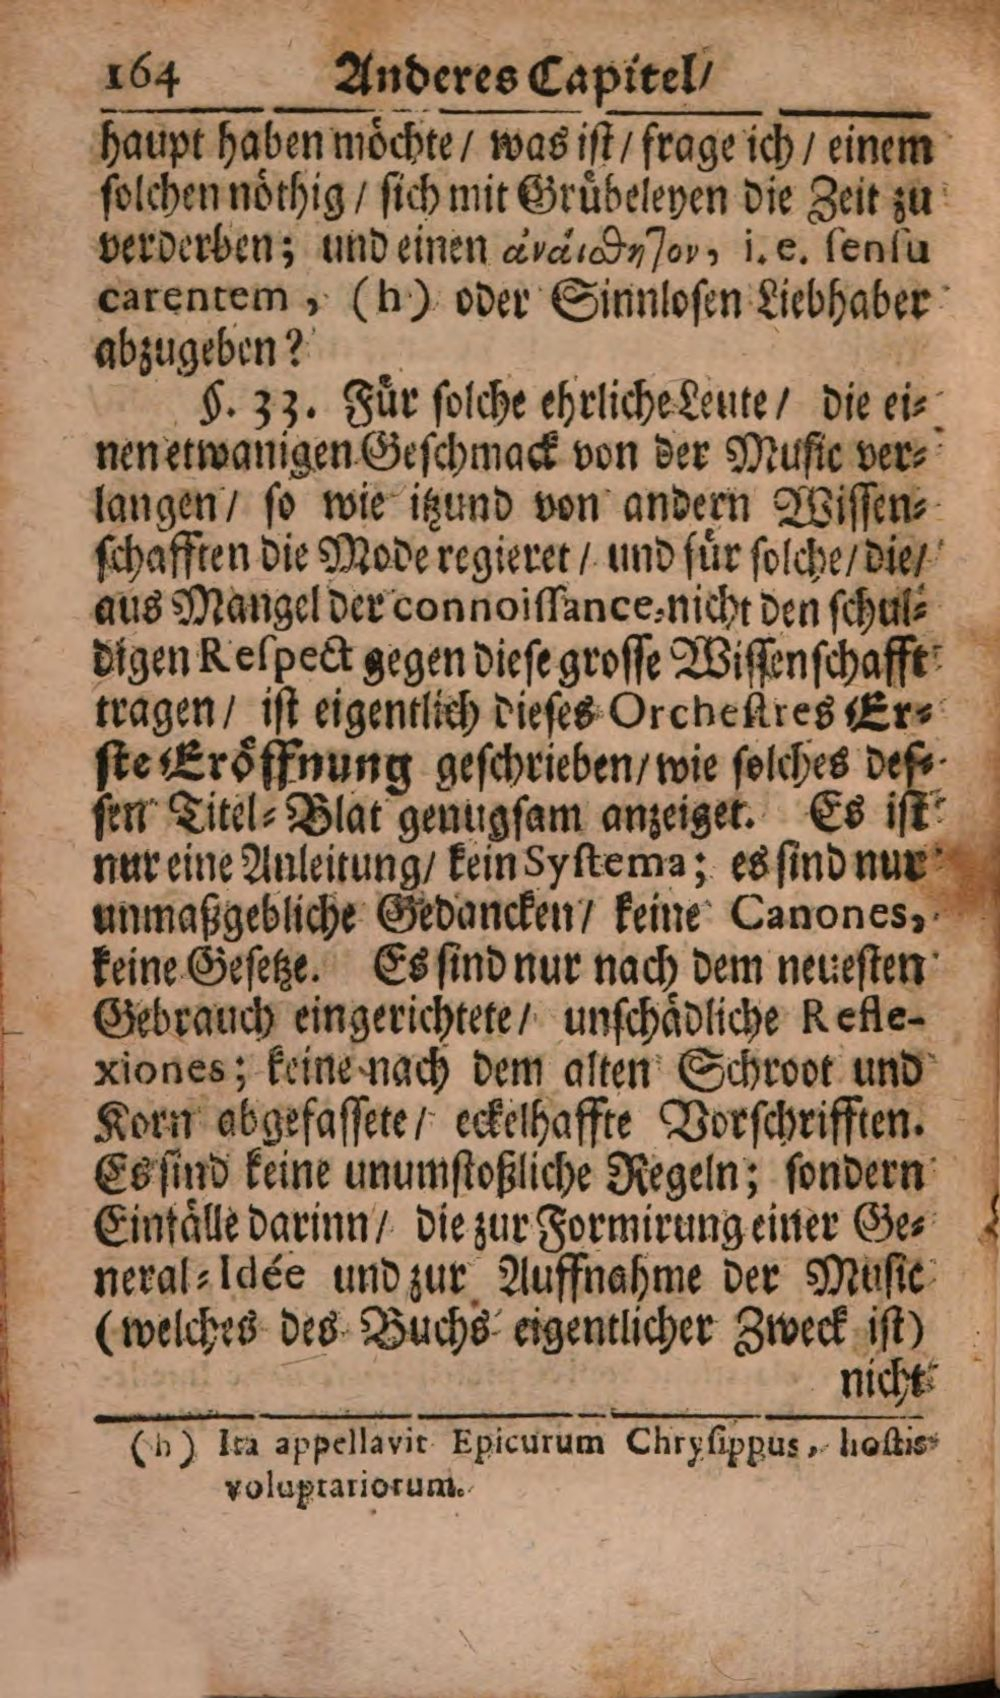 164 Anderes Capitel/
haupt haben möchte/ was ist/ frage ich/ einem
solchen nöthig/ sich mit Grübeleyen die Zeit zu
verderben; und einen ἀνάισθητον, i. e. sensu
carentem, (h) oder Sinnlosen Liebhaber
abzugeben?
§. 33. Für solche ehrliche Leute/ die ei-
nen etwanigen Geschmack von der Music ver-
langen/ so wie itzund von andern Wissen-
schafften die Mode regieret/ und für solche/ die/
aus Mangel der connoissance, nicht den schul-
digen Respect gegen diese grosse Wissenschafft
tragen/ ist eigentlich dieses Orchestres Er-
ste Eröffnung geschrieben/ wie solches des-
sen Titel-Blat genugsam anzeiget. Es ist
nur eine Anleitung/ kein Systema; es sind nur
unmaßgebliche Gedancken/ keine Canones,
keine Gesetze. Es sind nur nach dem neuesten
Gebrauch eingerichtete/ unschädliche Refle-
xiones; keine nach dem alten Schroot und
Korn abgefassete/ eckelhaffte Vorschrifften.
Es sind keine unumstoßliche Regeln; sondern
Einfälle darinn/ die zur Formirung einer Ge-
neral-Idée und zur Auffnahme der Music
(welches des Buchs eigentlicher Zweck ist)
nicht
(h) Ita appellavit Epicurum Chrysippus, hostis
voluptariorum.